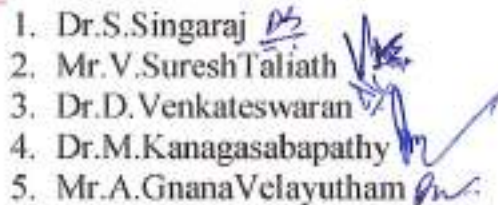 1. Dr.S.Singaraj
2. Mr.V.SureshTaliath
3. Dr.D.Venkateswaran
4. Dr.M.Kanagasabapathy
5. Mr.A.GnanaVelayutham